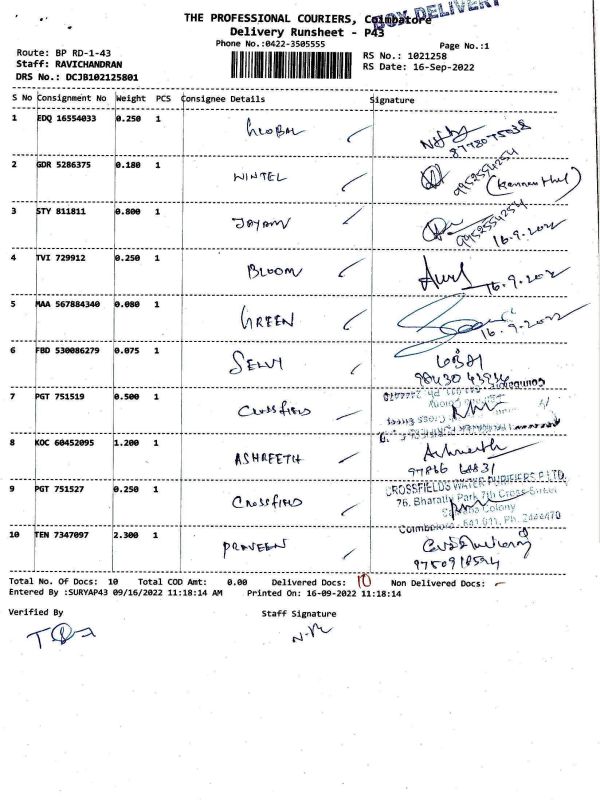 THE PROFESSIONAL COURIERS, Coimbatore
BOX DELIVERY
Delivery Runsheet - P43
Phone No.:0422-3505555
Page No.:1
Route: BP RD-1-43
RS No.: 1021258
Staff: RAVICHANDRAN
RS Date: 16-Sep-2022
DRS No.: DCJB102125801
S No Consignment No Weight PCS Consignee Details Signature
1 EDQ 16554033 0.250 1 GLOBAL
2 GDR 5286375 0.180 1 WINTEL 9952554254
3 STY 811811 0.800 1 JAYAM 9952554254
16.9.2022
4 TVI 729912 0.250 1 BLOOM 16.9.2022
5 MAA 567884340 0.080 1 GREEN 16.9.2022
6 FBD 530086279 0.075 1 SELVI
7 PGT 751519 0.500 1 CROSSFIELD
8 KOC 60452095 1.200 1 ASHREETH
9 PGT 751527 0.250 1 CROSSFIELD CROSSFIELDS WATER PURIFIERS P LTD.
76, Bharathi Park 7th Cross Street
Colony
Coimbatore - 641 011, Ph. 2444470
10 TEN 7347097 2.300 1 PRAVEEN
9750918594
Total No. Of Docs: 10 Total COD Amt: 0.00 Delivered Docs: 10 Non Delivered Docs: -
Entered By :SURYAP43 09/16/2022 11:18:14 AM Printed On: 16-09-2022 11:18:14
Verified By Staff Signature